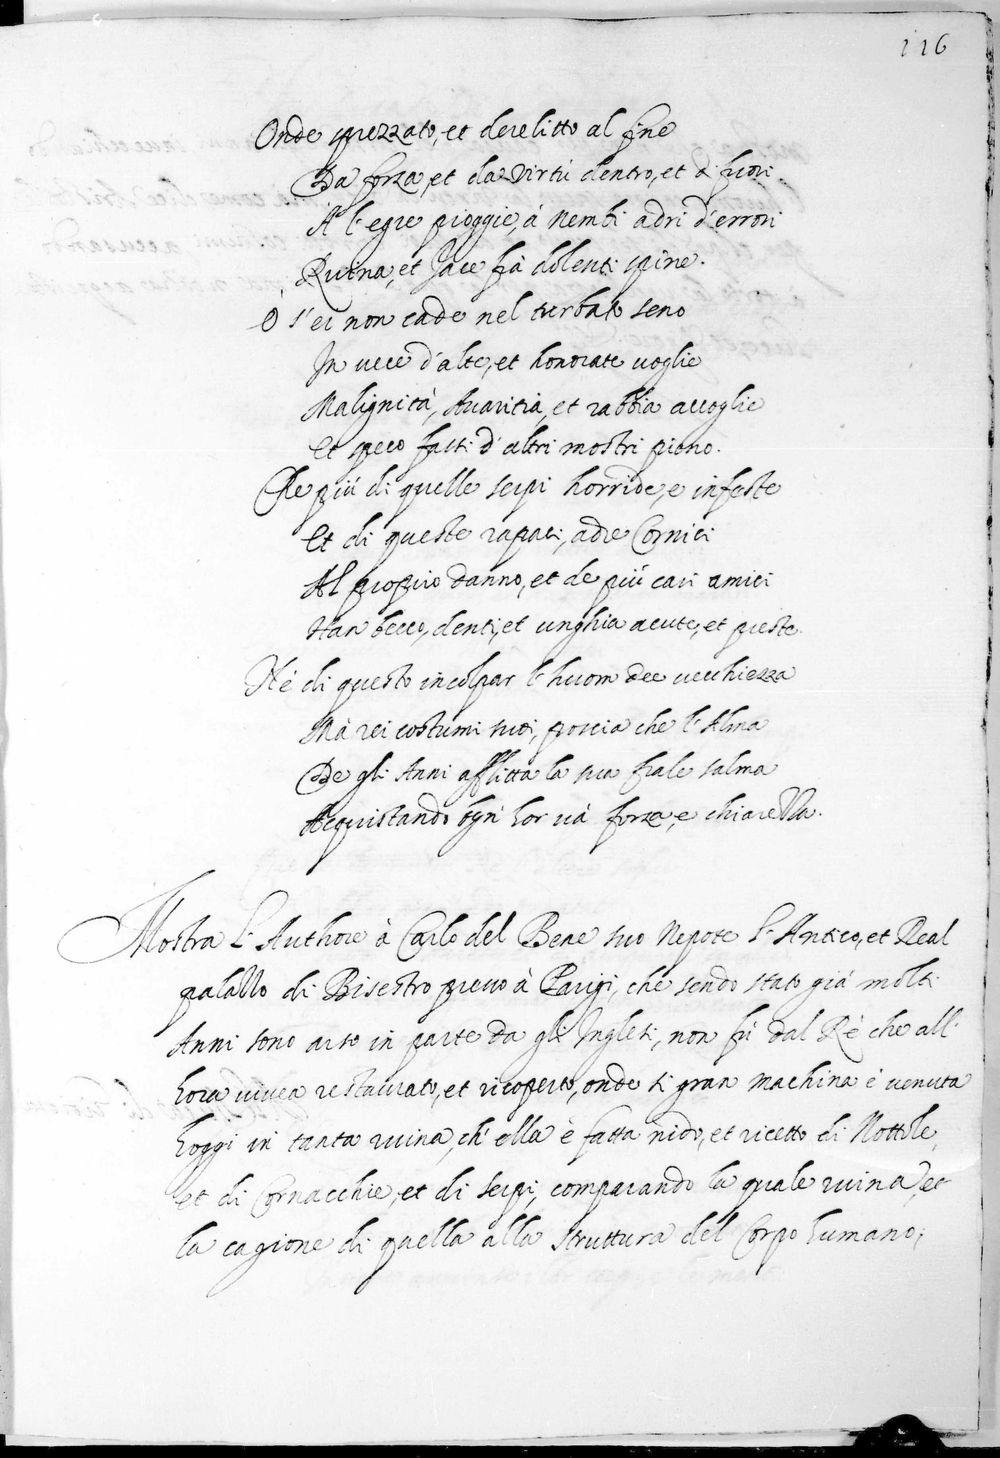 116
Onde sprezzato, et derelitto al fine
Da forza, et da virtù dentro, et di fuori
A l'egre pioggie, à nembi adri d'errori
Ruina, et Jace frà dolenti spine.
O s'ei non cade nel turbato seno
In vece d'alte, et honorate voglie
Malignità, Avaritia, et rabbia accoglie
Et speco fassi d'altri mostri pieno.
Che più di quelle serpi horride, e infeste
Et di queste rapaci, adre Cornici
Al proprio danno, et de più cari amici
Han becco, denti, et unghia acute, et preste.
Nè di questo incolpar l'huom dee vecchiezza
Mà rei costumi suoi, poscia che l'Alma
De gli Anni afflitta la sua frale salma
Acquistando ogn'hor và forza, e chiarezza.
Mostra l'Authore à Carlo del Bene suo Nepote l'Antico, et Real
palazzo di Bisestro presso à Parigi, che sendo stato già molti
Anni sono arso in parte da gli Inglesi, non fù dal Rè che all'
hora vivea restaurato, et ricoperto, onde si gran machina è venuta
hoggi in tanta ruina, ch'ella è fatta nido, et ricetto di Nottole,
et di Cornacchie, et di serpi, comparando la quale ruina, et
la cagione di quella alla struttura del Corpo humano;